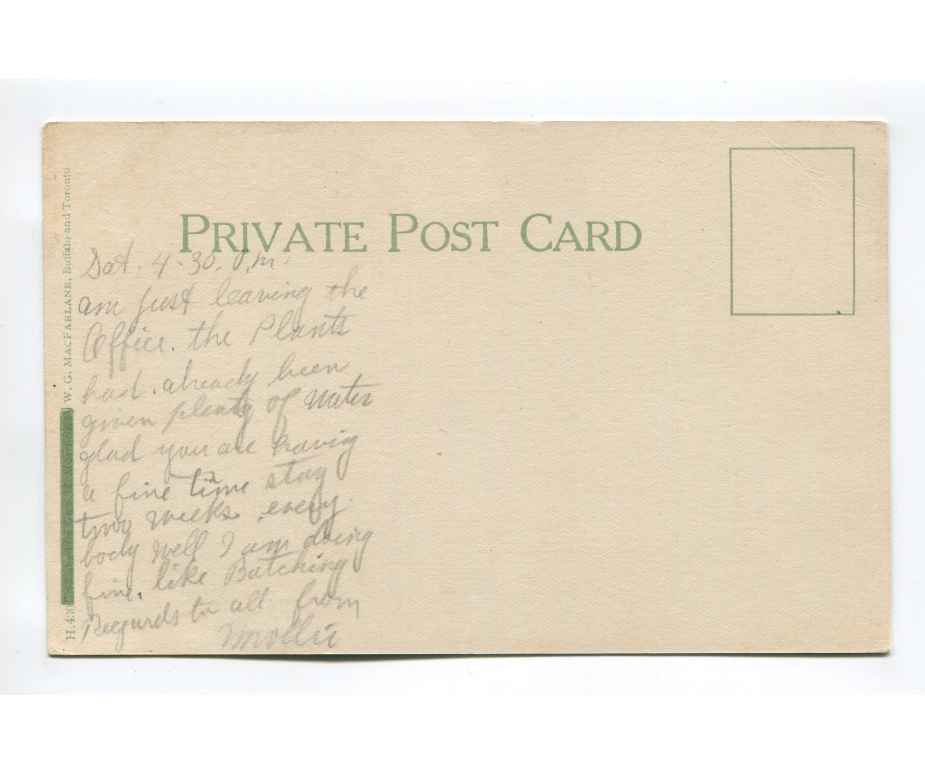 PRIVATE POST CARD
W. G. MACFARLANE, Buffalo and Toronto
Sat. 4.30. P.m.
am just leaving the
Office. the Plants
had. already been
given plenty of water
glad you are having
a fine time stay
two weeks. every
body well I am doing
fine. like Batching
Regards to all from
Mollie